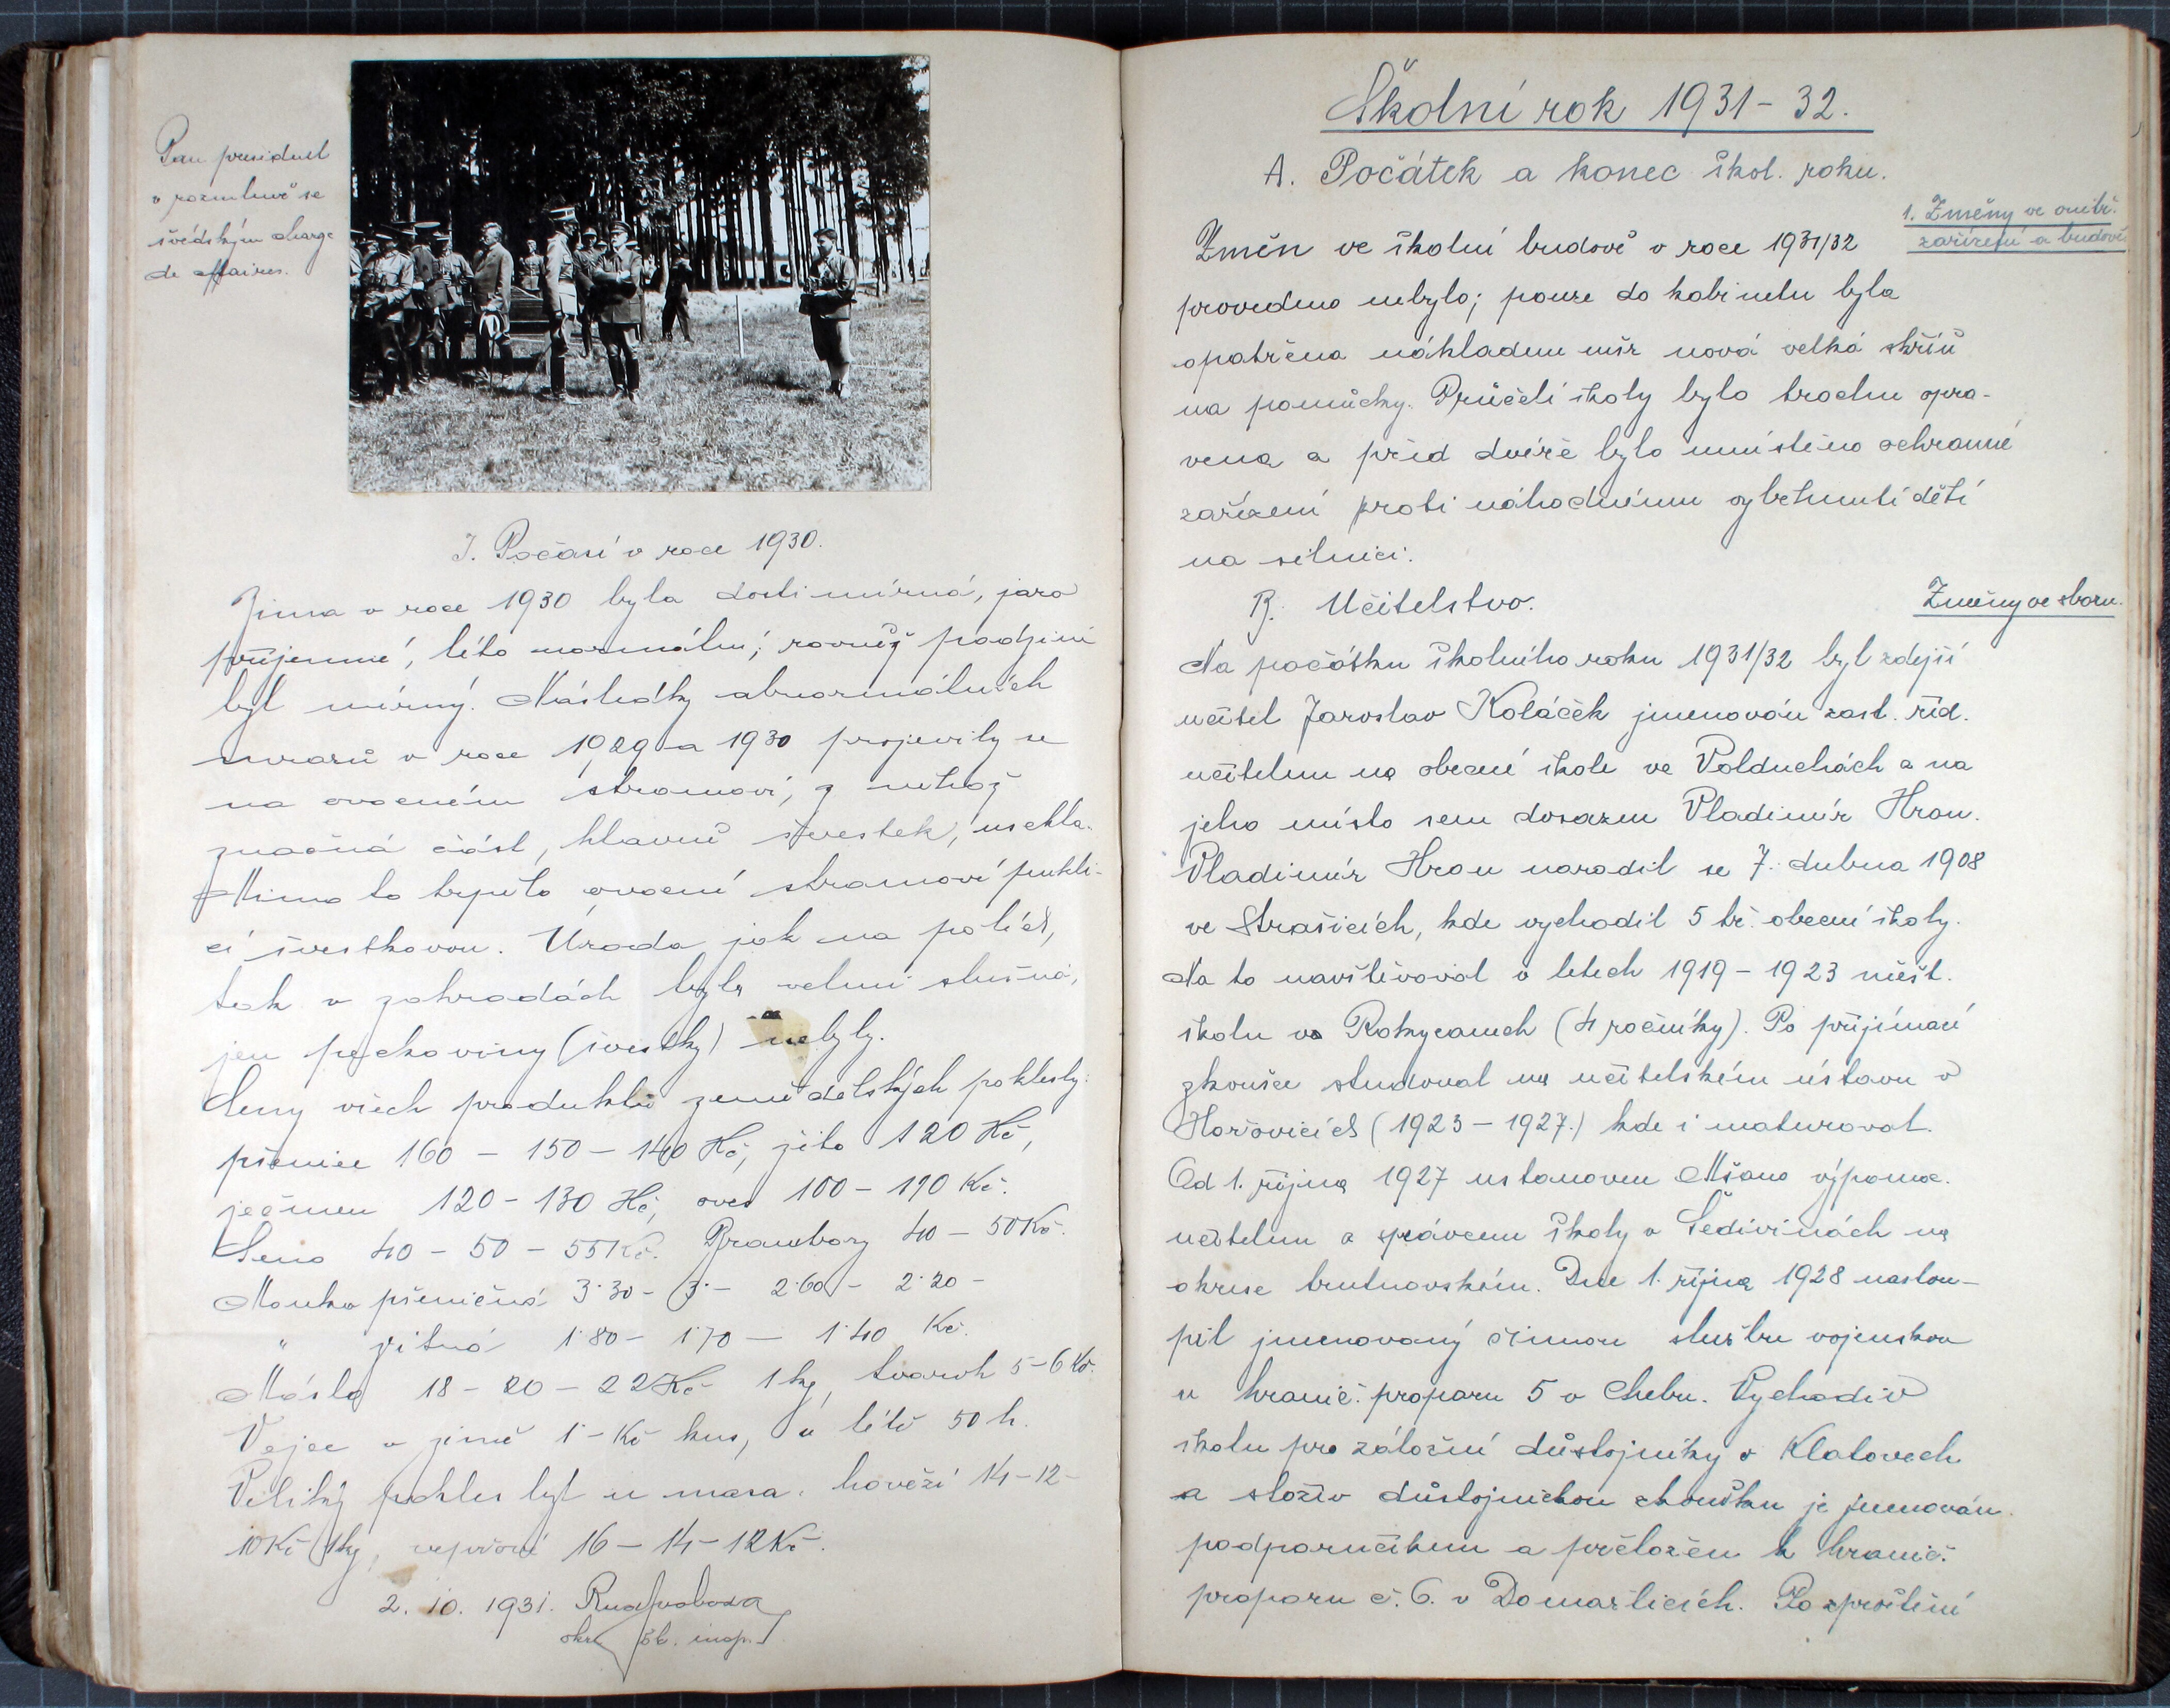 Pan president
v rozmluvě se
švédským charge
de affaires.
I. Počasí v roce 1930.
Zima v roce 1930 byla dosti mírná, jaro
příjemné, léto normální; rovněž podzim
byl mírný. Následky abnormálních
mrazů v roce 1929 a 1930 projevily se
na ovocném stromoví, z něhož
značná část, hlavně švestek, uschla.
Mimo to trpělo ovocní stromoví pukli-
cí švestkovou. Úroda jak na polích,
tak v zahradách byla velmi slušná,
jen peckoviny (švestky) nebyly.
Ceny všech produktů zemědělských poklesly:
pšenice 160 - 150 - 140 Kč, žito 120 Kč,
ječmen 120 - 130 Kč, oves 100 - 110 Kč.
Seno 40 - 50 - 55 Kč. Brambory 40 - 50 Kč.
Mouka pšeničná 3·30 - 3·- 2·60 - 2·20 -
" žitná 1·80 - 1·70 - 1·40 Kč.
Máslo 18 - 20 - 22 Kč 1 kg, tvaroh 5-6 Kč.
Vejce v zimě 1 - Kč kus, v létě 50 h.
Veliký pokles byl u masa: hovězí 14-12-
10 Kč 1 kg, vepřové 16 - 14 - 12 Kč.
2. 10. 1931. Rud. Svoboda
okr. šk. insp.
Školní rok 1931 - 32.
A. Počátek a konec škol. roku.
1. Změny ve vnitř.
zařízení a budově
Změn ve školní budově v roce 1931/32
provedeno nebylo; pouze do kabinetu byla
opatřena nákladem mšr nová velká skříň
na pomůcky. Průčelí školy bylo trochu opra-
vena a před dvéře bylo umístěno ochranné
zařízení proti náhodnému vyběhnutí dětí
na silnici.
B. Učitelstvo.
Změny ve sboru.
Na počátku školního roku 1931/32 byl zdejší
učitel Jaroslav Koláček jmenován zast. říd.
učitelem na obecné škole ve Volduchách a na
jeho místo sem dosazen Vladimír Hron.
Vladimír Hron narodil se 7. dubna 1908
ve Strašicích, kde vychodil 5 tř. obecní školy.
Na to navštěvoval v letech 1919 - 1923 měšt.
školu va Rokycanech (4 ročníky). Po přijímací
zkoušce studoval na učitelském ústavu v
Hořovicích (1923 - 1927.) kde i maturoval.
Od 1. října 1927 ustanoven Mšano výpomoc.
učitelem a správcem školy v Šedivinách na
okrese trutnovském. Dne 1. října 1928 nastou-
pil jmenovaný činnou službu vojenskou
u hranič. praporu 5 v Chebu. Vychodiv
školu pro záložní důstojníky v Klatovech
a složiv důstojnickou zkoušku je jmenován
podporučíkem a přeložen k hranič.
praporu č. 6. v Domažlicích. Po zproštění